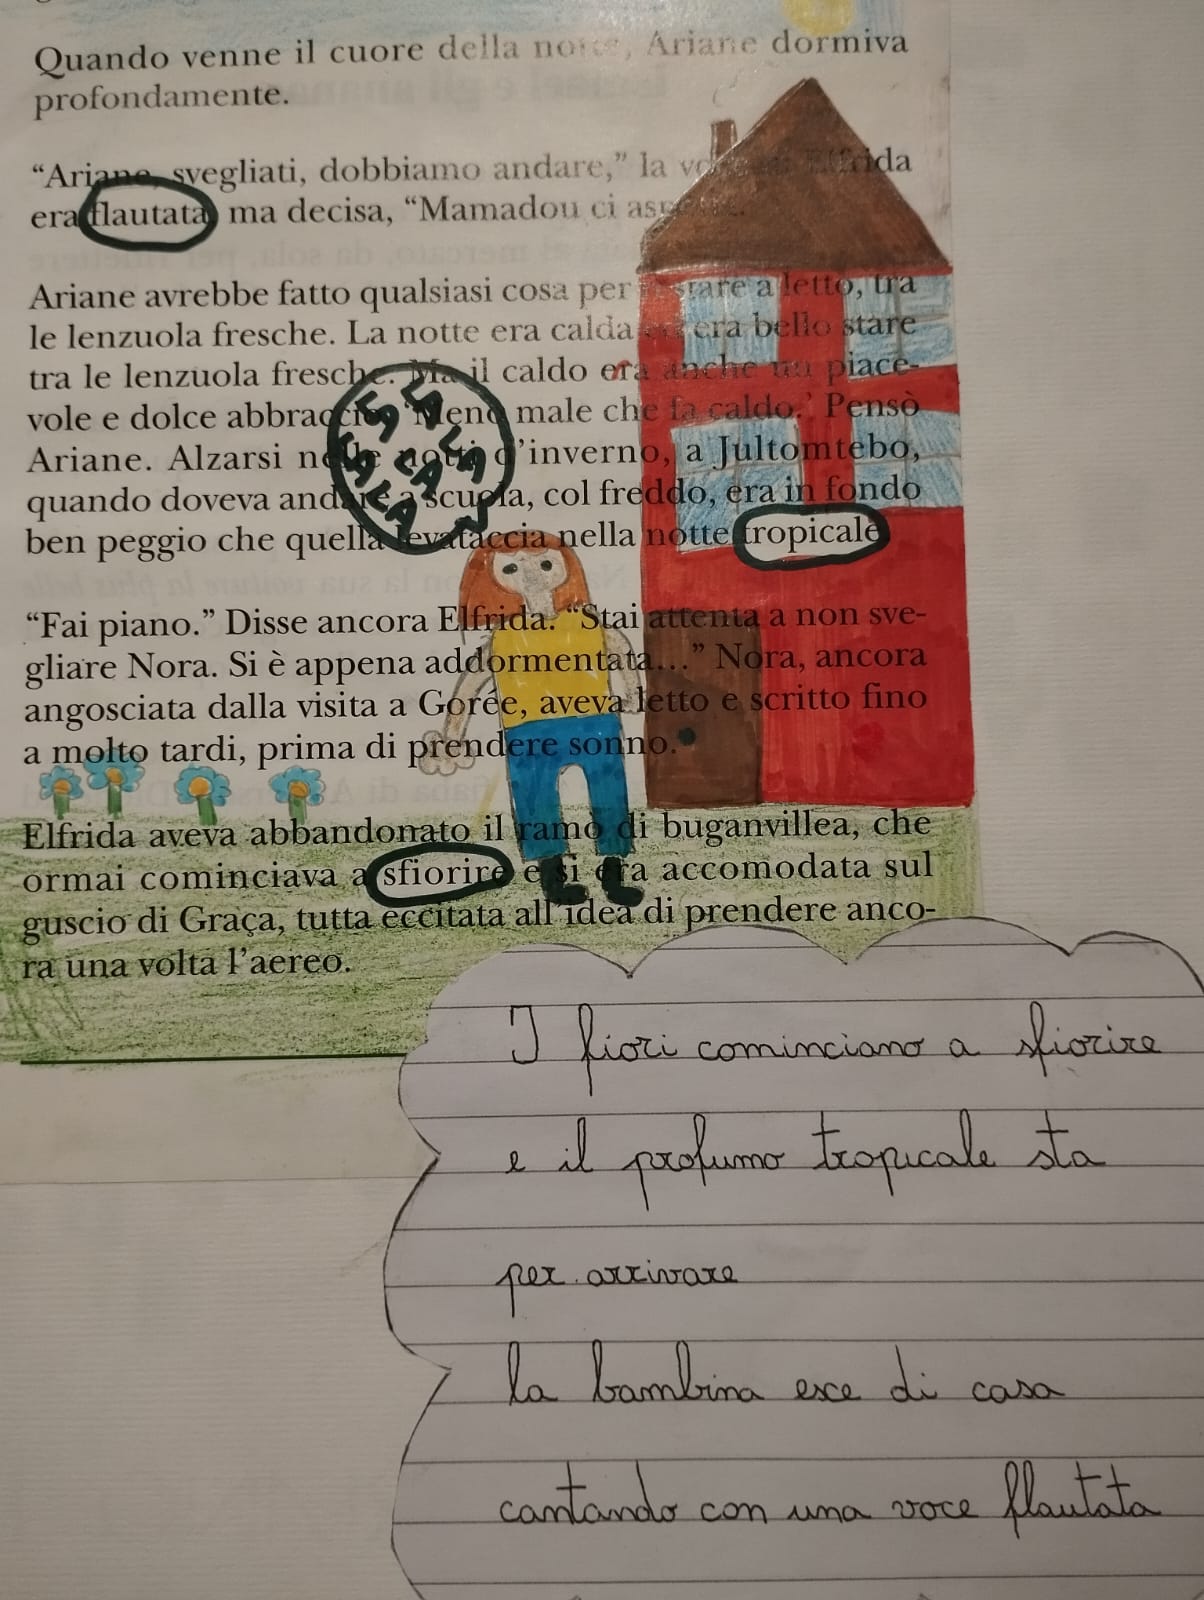 Quando venne il cuore della notte, Ariane dormiva
profondamente.
“Ariane, svegliati, dobbiamo andare,” la voce di Elfrida
era flautata, ma decisa, “Mamadou ci aspetta.
Ariane avrebbe fatto qualsiasi cosa per restare a letto, tra
le lenzuola fresche. La notte era calda ed era bello stare
tra le lenzuola fresche. Ma il caldo era anche un piace-
vole e dolce abbraccio. ‘Meno male che fa caldo.’ Pensò
Ariane. Alzarsi nelle notti d’inverno, a Jultomtebo,
quando doveva andare a scuola, col freddo, era in fondo
ben peggio che quella levataccia nella notte tropicale
“Fai piano.” Disse ancora Elfrida. “Stai attenta a non sve-
gliare Nora. Si è appena addormentata...” Nora, ancora
angosciata dalla visita a Gorée, aveva letto e scritto fino
a molto tardi, prima di prendere sonno.
Elfrida aveva abbandonato il ramo di buganvillea, che
ormai cominciava a sfiorire e si era accomodata sul
guscio di Graça, tutta eccitata all’idea di prendere anco-
ra una volta l’aereo.
I fiori cominciano a sfiorire
e il profumo tropicale sta
per arrivare
la bambina esce di casa
cantando con una voce flautata